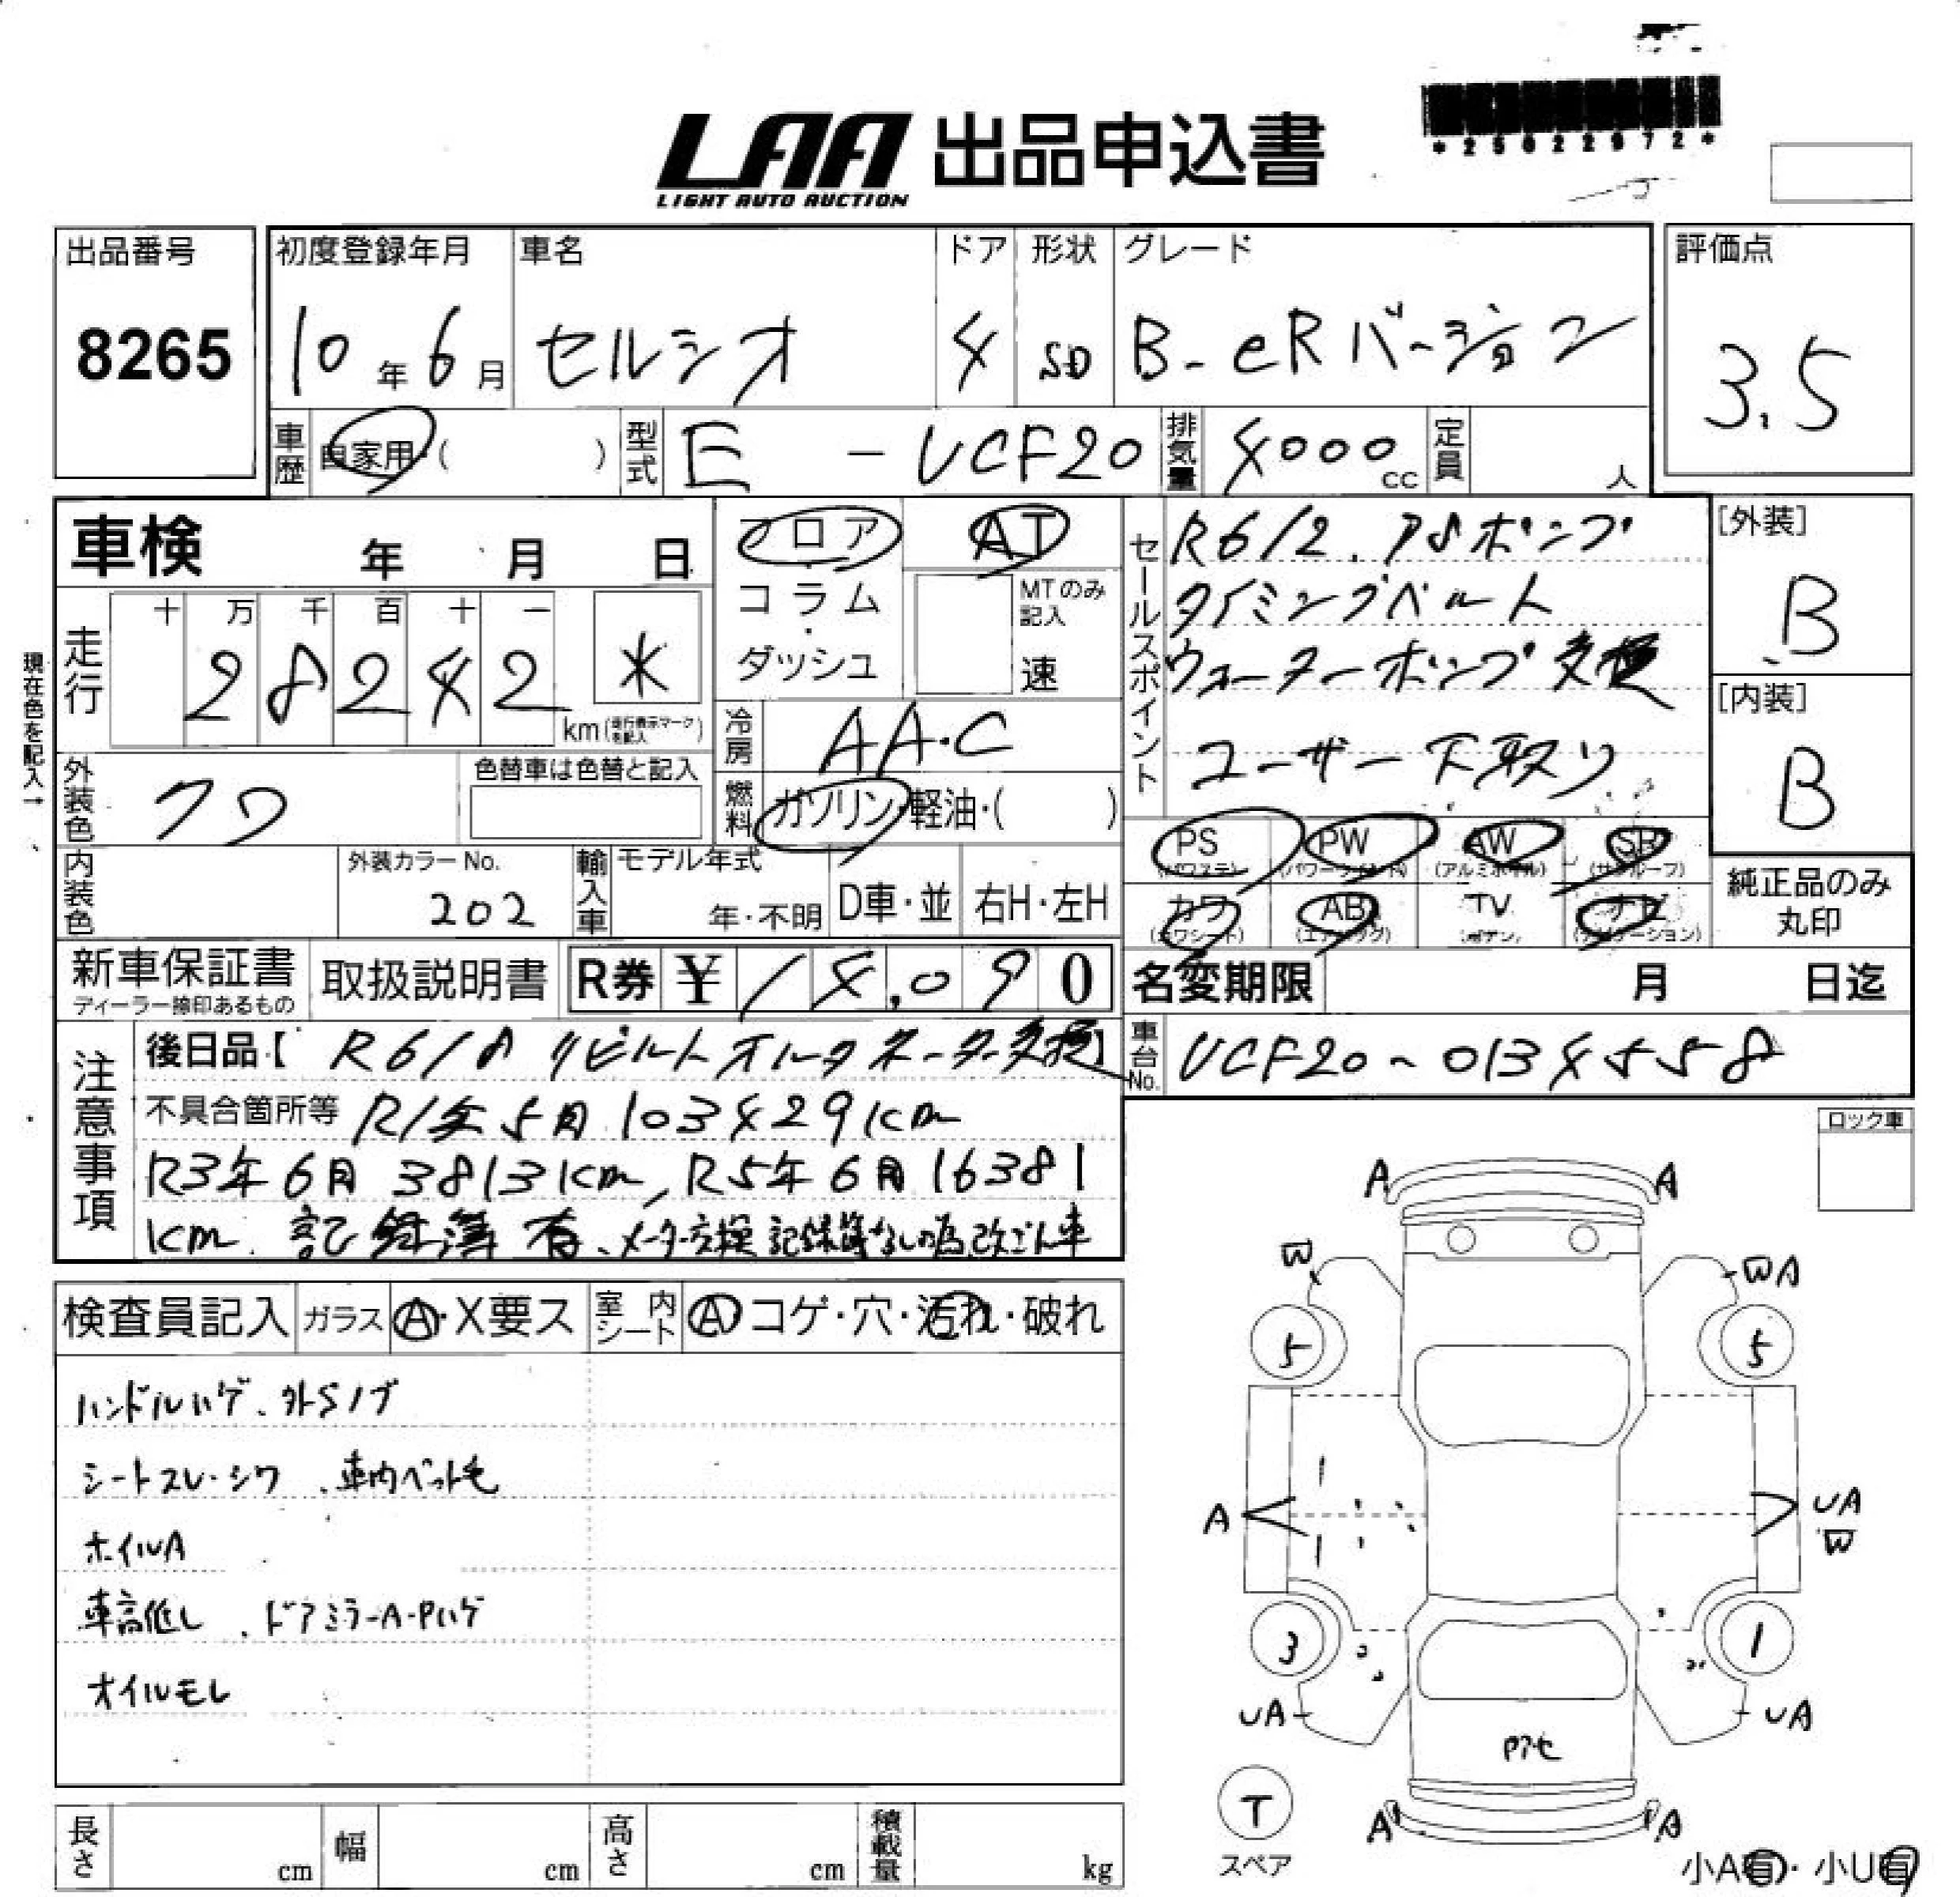 *25022972*
LAA 出品申込書
LIGHT AUTO AUCTION
出品番号 初度登録年月 車名 ドア 形状 グレード 評価点
8265 10年6月 セルシオ 4 SD B-eRバージョン 3.5
車歴 自家用・( ) 型式 E - UCF20 排気量 4000cc 定員 人
車検 年 月 日 フロア・コラム・ダッシュ AT MTのみ記入 速
セールスポイント R6/2. PSポンプ
タイミングベルト
ウォーターポンプ交換
ユーザー下取り
[外装] B
[内装] B
現在色を記入→
走行 十 万 千 百 十 一
28242 * km(走行表示マークを記入)
冷房 AA.C
外装色 クロ 色替車は色替と記入 燃料 ガソリン・軽油・( )
PS (パワステ) PW (パワーウィンド) AW (アルミホイル) SR (サンルーフ)
カワ (カワシート) AB (エアバッグ) TV ナビ (ナビゲーション) 純正品のみ丸印
内装色 外装カラーNo. 202 輸入車 モデル年式 年・不明 D車・並 右H・左H
新車保証書 ディーラー捺印あるもの 取扱説明書 R券 ¥ 14,090 名変期限 月 日迄
注意事項 後日品【 R6/8 リビルトオルタネーター交換】
車台No. UCF20-0134558
不具合箇所等 R1年5月 103429km
R3年6月 3813km, R5年6月 16381
km. 記録簿有、メーター交換記録簿なしの為改ざん車
ロック車
検査員記入 ガラス A・X要ス 室内シート A コゲ・穴・汚れ・破れ
ハンドルハゲ、外Sノブ
シートスレ・シワ 、車内ペット毛
ホイルA
車高低し 、ドアミラーA・Pハゲ
オイルモレ
A A
W WA
5 5
A UA
W
3 1
UA UA
Pアセ
T
スペア
A A
長さ cm 幅 cm 高さ cm 積載量 kg
小A有・小U有